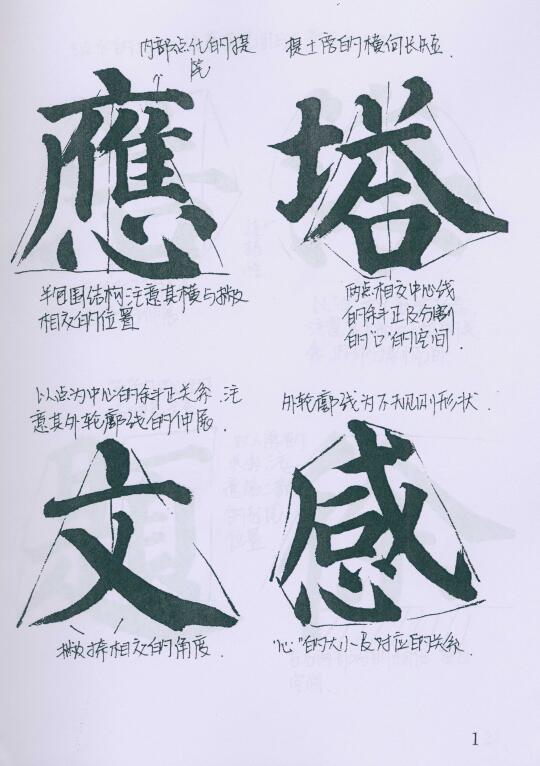 内部点化的提
提土旁的横向长短.
應
塔
半包围结构注意其横与撇
相交的位置
两点相交中心线
的斜正及分割
的"口"的空间.
以点为中心的斜正关系.注
意其外轮廓线的伸展.
外轮廓线为不规则形状.
文
感
撇捺相交的角度.
"心"的大小及对应的关系.
1